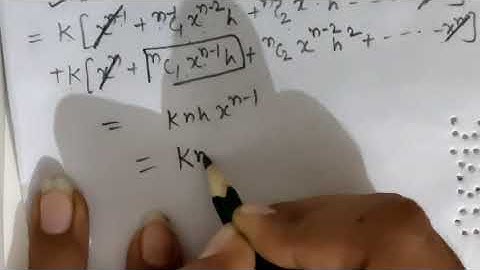 = K[x^{n-1} + ⁿC₁ x^{n-2}h + ⁿC₂ x h + ... - xⁿ]
+K[xⁿ + ⁿC₁ x^{n-1}h + ⁿC₂ x^{n-2}h² + ...
= Knh x^{n-1}
= Kn